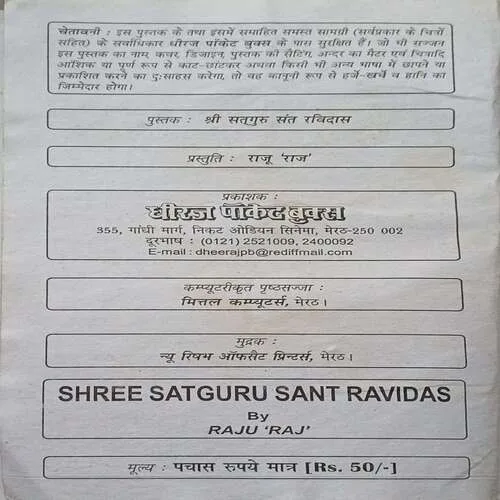 चेतावनी : इस पुस्तक के तथा इसमें समाहित समस्त सामग्री (सर्वप्रकार के चित्रों
सहित) के सर्वाधिकार धीरज पॉकेट बुक्स के पास सुरक्षित हैं। जो भी सज्जन
इस पुस्तक का नाम, कवर, डिजाइन, पुस्तक की सैटिंग, अन्दर का मैटर एवं चित्रादि
आंशिक या पूर्ण रूप से काट-छांटकर अथवा किसी भी अन्य भाषा में छापने या
प्रकाशित करने का दुःसाहस करेगा, तो वह कानूनी रूप से हर्जे-खर्चे व हानि का
जिम्मेदार होगा।
पुस्तक : श्री सत्गुरु संत रविदास
प्रस्तुति : राजू 'राज'
प्रकाशक :
धीरज पॉकेट बुक्स
355, गांधी मार्ग, निकट ओडियन सिनेमा, मेरठ-250 002
दूरभाष : (0121) 2521009, 2400092
E-mail : dheerajpb@rediffmail.com
कम्प्यूटरीकृत पृष्ठसज्जा :
मित्तल कम्प्यूटर्स, मेरठ।
मुद्रक :
न्यू रिषभ ऑफसैट प्रिन्टर्स, मेरठ।
SHREE SATGURU SANT RAVIDAS
By
RAJU 'RAJ'
मूल्य : पचास रुपये मात्र [Rs. 50/-]